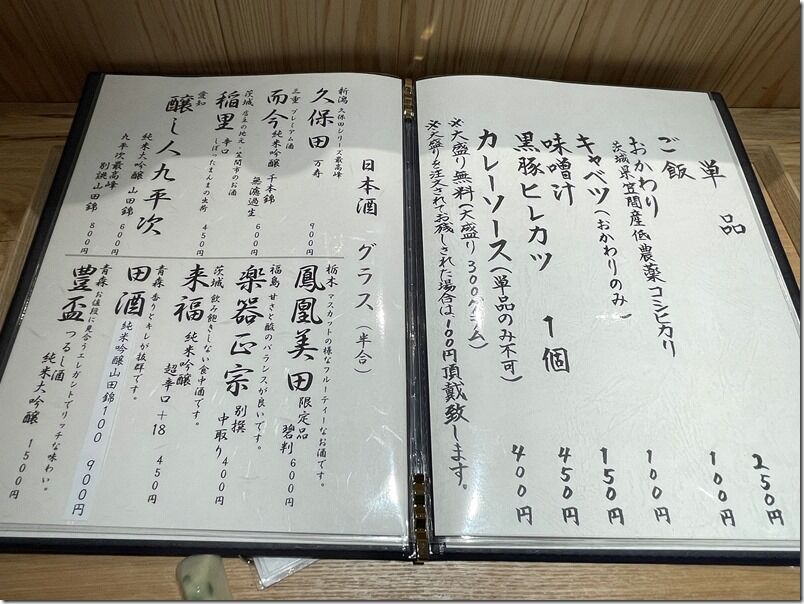 単品
ご飯 250円
おかわり 100円
茨城県笠間産低農薬コシヒカリ
キャベツ(おかわりのみ) 100円
味噌汁 150円
黒豚ヒレカツ 1個 450円
カレーソース(単品のみ不可) 400円
※大盛り無料(大盛り300グラム)
※大盛りを注文されてお残しされた場合は、100円頂戴致します。
日本酒 グラス(半合)
新潟 久保田シリーズ最高峰
久保田 万寿 900円
三重 プレミアム酒
而今 純米吟醸 千本錦 無濾過生 600円
茨城 店主の地元・笠間市のお酒
稲里 辛口 しぼったまんまの出荷 450円
愛知
醸し人九平次 純米大吟醸 山田錦 600円
九平次最高峰 別誂山田錦 800円
栃木 マスカットの様なフルーティーなお酒です。
鳳凰美田 限定品 碧判 600円
福島 甘さと酸のバランスが良いです。
楽器正宗 別撰 中取り 400円
茨城 飲み飽きしない食中酒です。
来福 純米吟醸 超辛口+18 450円
青森 香りとキレが抜群です。
田酒 純米吟醸山田錦100 900円
青森 お値段に見合うエレガントでリッチな味わい。
豊盃 つるし酒 純米大吟醸 1500円